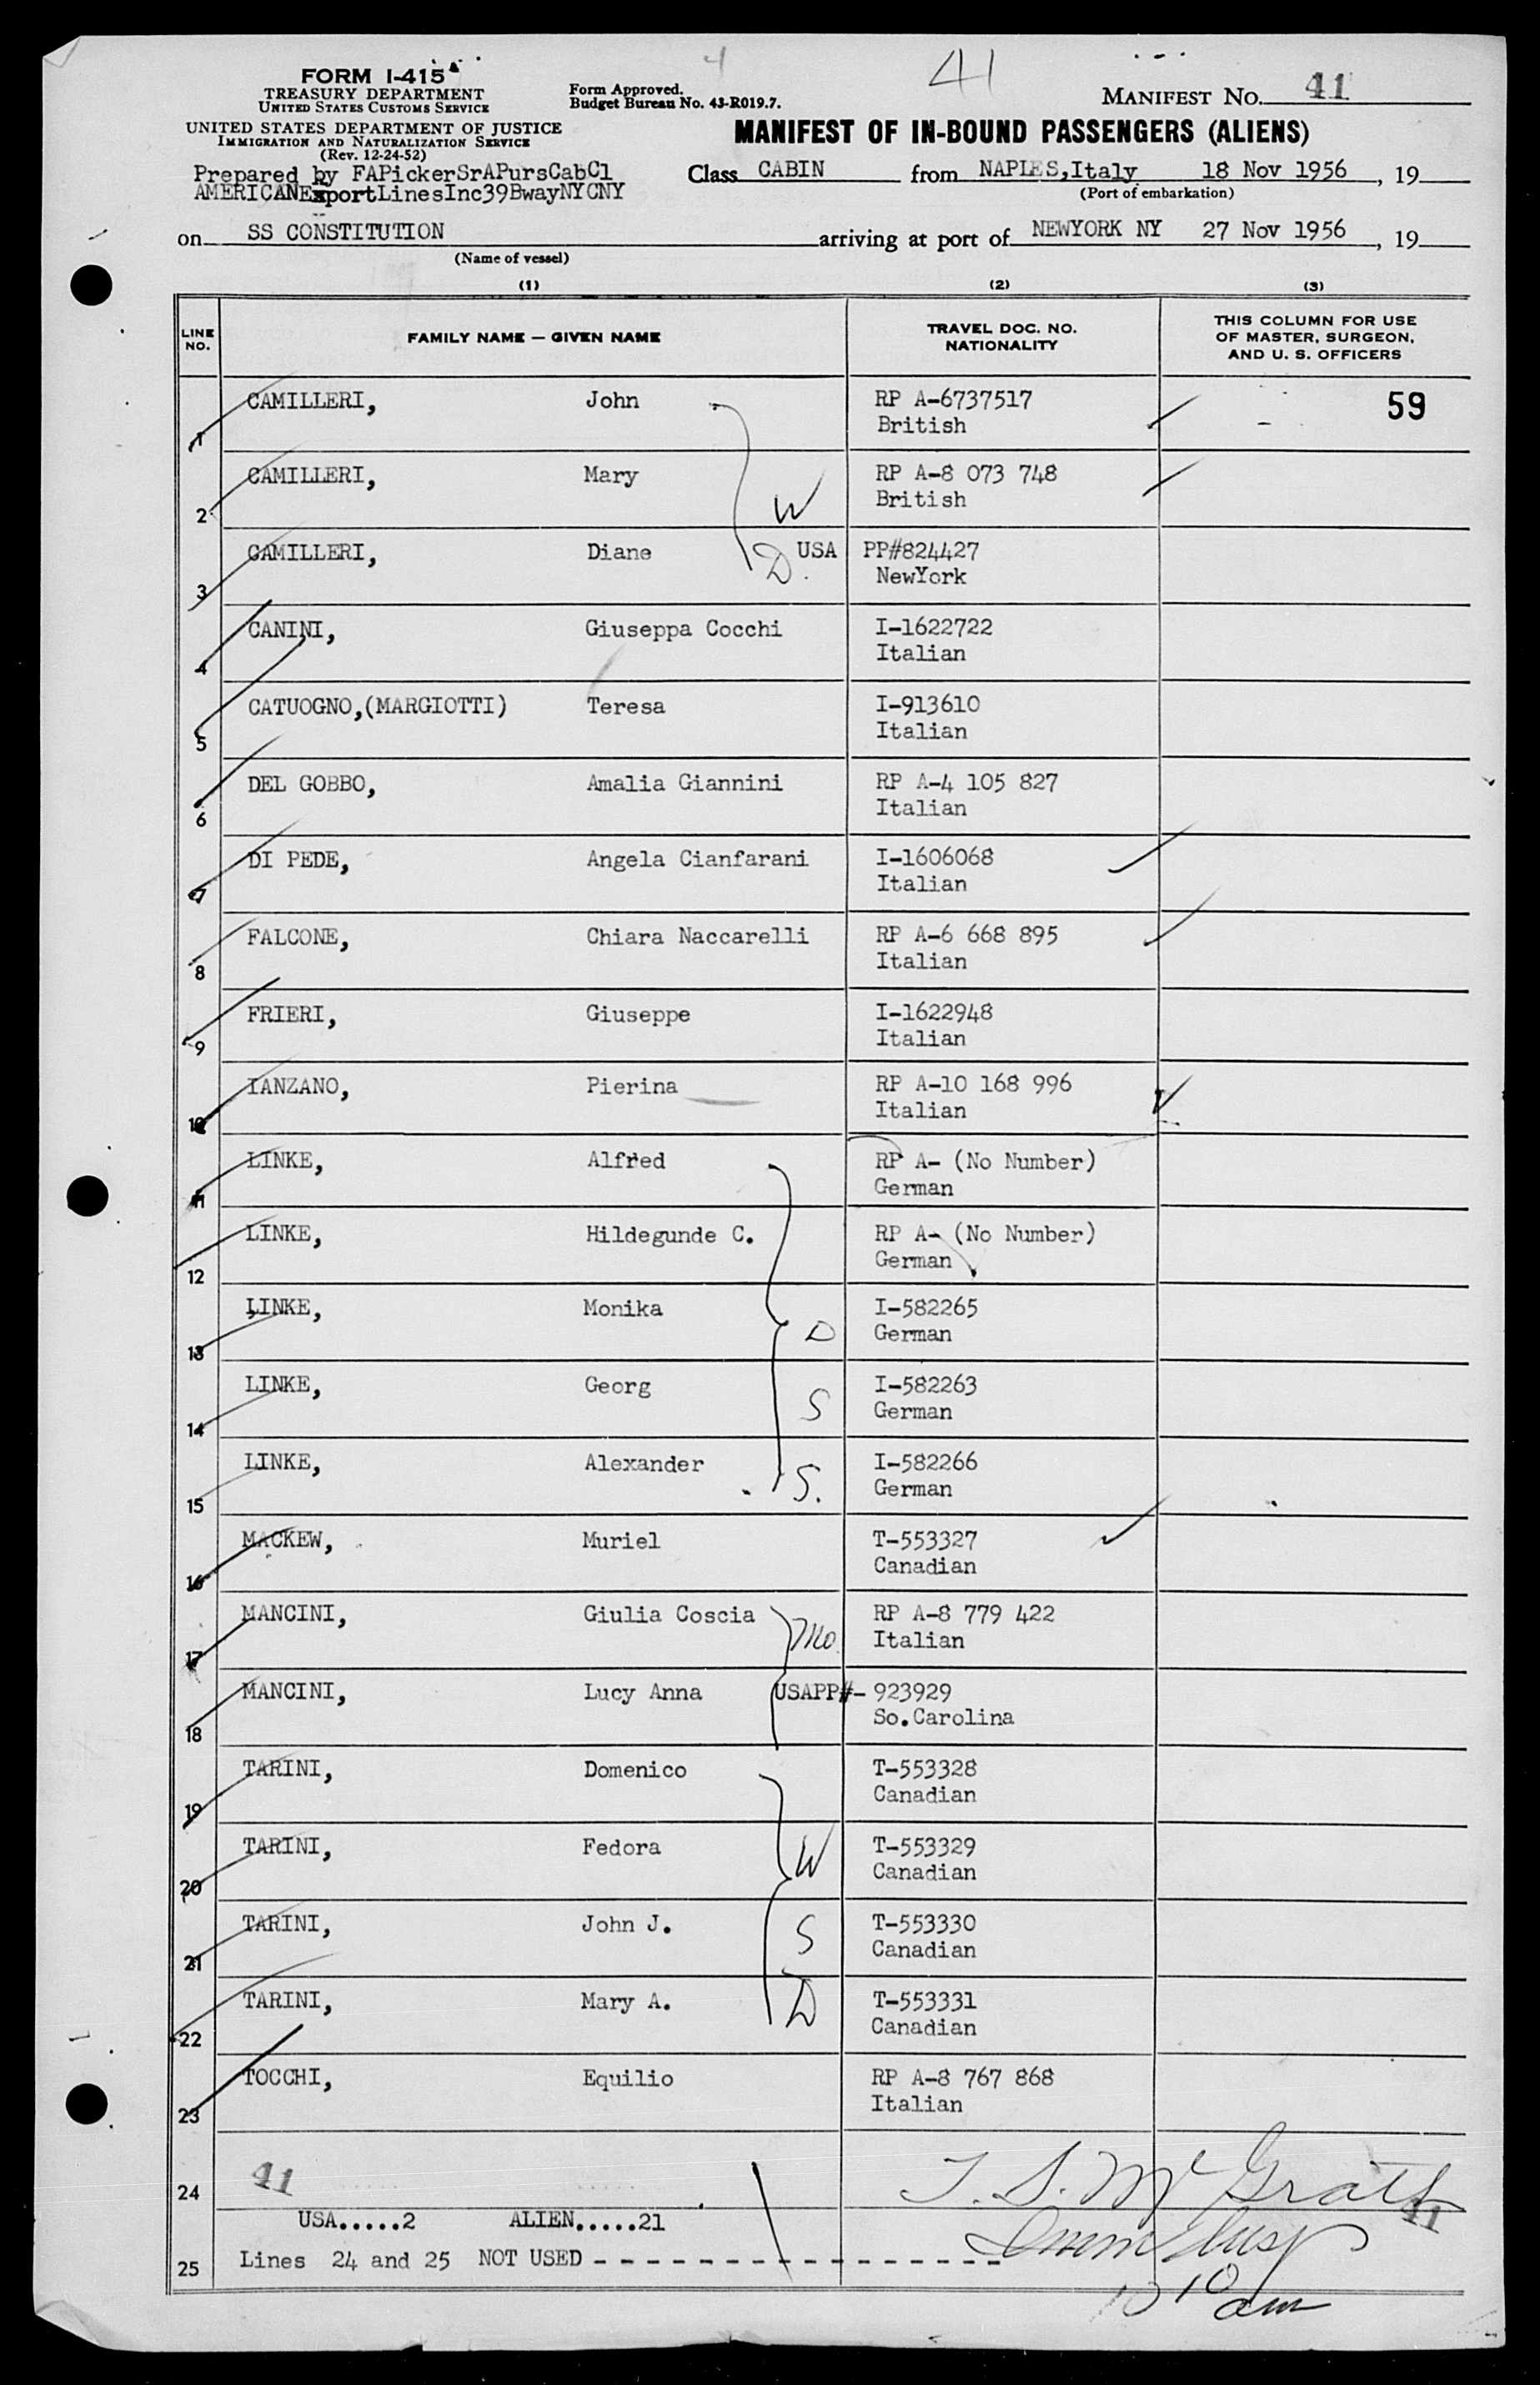 4
41
FORM I-415
TREASURY DEPARTMENT
UNITED STATES CUSTOMS SERVICE
Form Approved.
Budget Bureau No. 43-R019.7.
MANIFEST NO. 41
UNITED STATES DEPARTMENT OF JUSTICE
IMMIGRATION AND NATURALIZATION SERVICE
(Rev. 12-24-52)
MANIFEST OF IN-BOUND PASSENGERS (ALIENS)
Prepared by FAPickerSrAPursCabCl
AMERICANExportLinesInc39BwayNYCNY
Class CABIN from NAPLES,Italy 18 Nov 1956, 19
(Port of embarkation)
on SS CONSTITUTION arriving at port of NEWYORK NY 27 Nov 1956, 19
(Name of vessel)
(1) (2) (3)
LINE NO. FAMILY NAME — GIVEN NAME TRAVEL DOC. NO. NATIONALITY THIS COLUMN FOR USE OF MASTER, SURGEON, AND U. S. OFFICERS
1 CAMILLERI, John RP A-6737517 59
British
2 CAMILLERI, Mary W RP A-8 073 748
British
3 CAMILLERI, Diane D. USA PP#824427
NewYork
4 CANINI, Giuseppa Cocchi I-1622722
Italian
5 CATUOGNO,(MARGIOTTI) Teresa I-913610
Italian
6 DEL GOBBO, Amalia Giannini RP A-4 105 827
Italian
7 DI PEDE, Angela Cianfarani I-1606068
Italian
8 FALCONE, Chiara Naccarelli RP A-6 668 895
Italian
9 FRIERI, Giuseppe I-1622948
Italian
10 IANZANO, Pierina RP A-10 168 996
Italian
11 LINKE, Alfred RP A- (No Number)
German
12 LINKE, Hildegunde C. RP A- (No Number)
German
13 LINKE, Monika D I-582265
German
14 LINKE, Georg S I-582263
German
15 LINKE, Alexander S. I-582266
German
16 MACKEW, Muriel T-553327
Canadian
17 MANCINI, Giulia Coscia Mo RP A-8 779 422
Italian
18 MANCINI, Lucy Anna USAPP#- 923929
So.Carolina
19 TARINI, Domenico T-553328
Canadian
20 TARINI, Fedora W T-553329
Canadian
21 TARINI, John J. S T-553330
Canadian
22 TARINI, Mary A. D T-553331
Canadian
23 TOCCHI, Equilio RP A-8 767 868
Italian
24 41 T. S. McGrath 41
USA.....2 ALIEN.....21
Immn Insp
25 Lines 24 and 25 NOT USED - - - - - - - - - - - - - - -
10 10 am